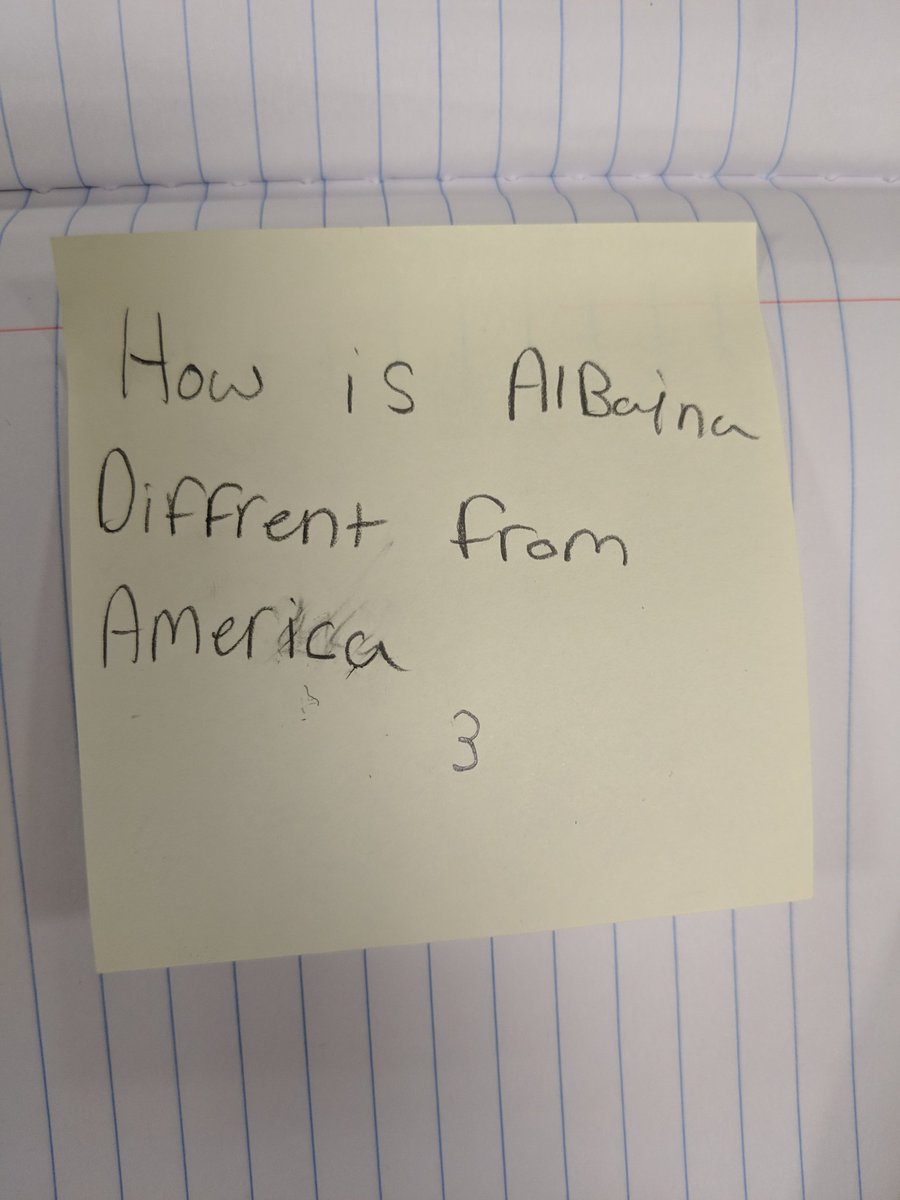 How is AlBaina
Diffrent from
America
3